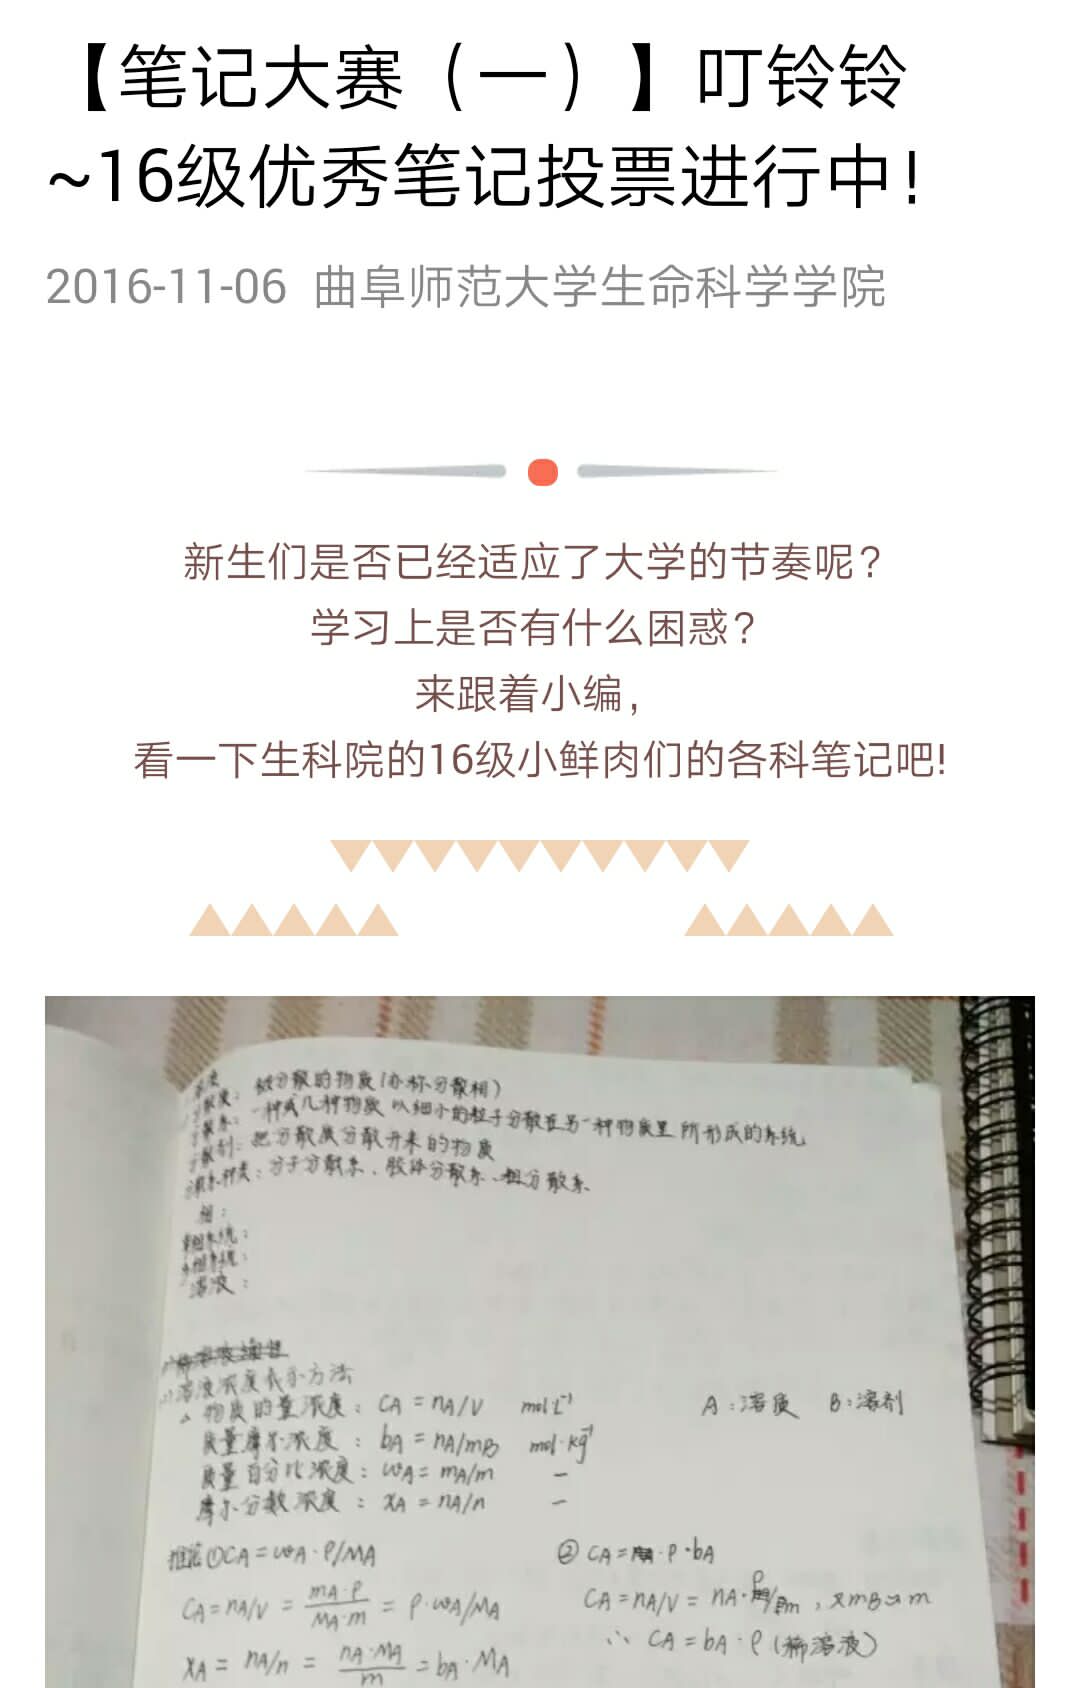 【笔记大赛（一）】叮铃铃
~16级优秀笔记投票进行中！
2016-11-06 曲阜师范大学生命科学学院
新生们是否已经适应了大学的节奏呢？
学习上是否有什么困惑？
来跟着小编，
看一下生科院的16级小鲜肉们的各科笔记吧!
被分散的物质（亦称分散相）
一种或几种物质以细小的粒子分散在另一种物质里所形成的系统
分散剂：把分散质分散开来的物质
分散系种类：分子分散系、胶体分散系、粗分散系
相：
单相系统：
多相系统：
溶液：
溶液浓度表示方法
物质的量浓度：CA = nA/V mol·L⁻¹ A：溶质 B：溶剂
质量摩尔浓度：bA = nA/mB mol·kg⁻¹
质量百分比浓度：wA = mA/m —
摩尔分数浓度：xA = nA/n —
①CA = wA·ρ/MA ② CA = ρ·bA
CA = nA/V = mA·ρ/MA·m = ρ·wA/MA
CA = nA/V = nA·ρ/m，又mB≈m
∴ CA = bA·ρ（稀溶液）
xA = nA/n = nA·MA/m = bA·MA